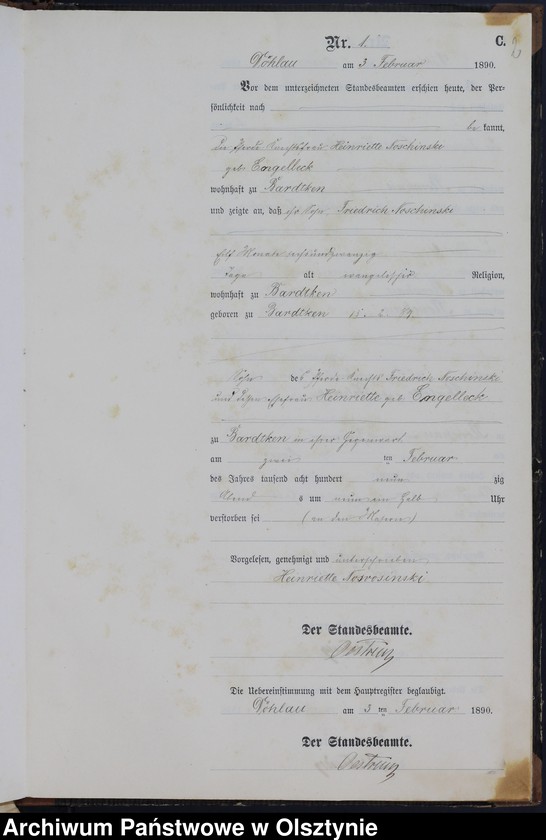 Nr. 1.
C.
Döhlau am 3 Februar 1890.
Vor dem unterzeichneten Standesbeamten erschien heute, der Per-
sönlichkeit nach
be kannt,
die Pferde Knechtsfrau Henriette Noschinski
geb Engelleck
wohnhaft zu Bardtken
und zeigte an, daß ihr Sohn Friedrich Noschinski
elf Monate sechsundzwanzig
Tage alt evangelischer Religion,
wohnhaft zu Bardtken
geboren zu Bardtken
Sohn des Pferde Knechts Friedrich Noschinski
und dessen Ehefrau Henriette geb Engelleck
zu Bardtken in ihrer Gegenwart
am zwei ten Februar
des Jahres tausend acht hundert neun zig
Abend s um neun ein halb Uhr
verstorben sei (an den Masern)
Vorgelesen, genehmigt und unterschrieben
Henriette Nowosinski
Der Standesbeamte.
Die Uebereinstimmung mit dem Hauptregister beglaubigt.
Döhlau am 3 ten Februar 1890.
Der Standesbeamte.
Archiwum Państwowe w Olsztynie